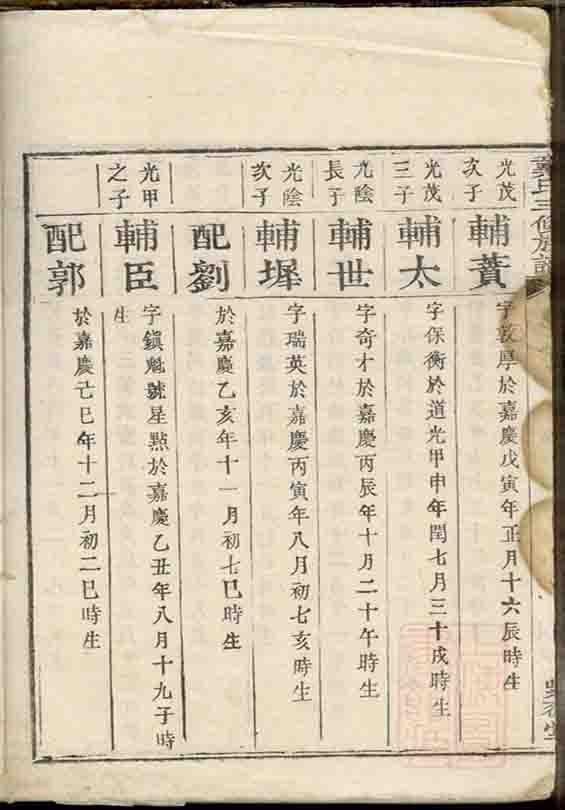 氏三修族譜
光茂次子
輔賫
字敦厚於嘉慶戊寅年正月十六辰時生
光茂三子
輔太
字保衡於道光甲申年閏七月三十戌時生
光陰長子
輔世
字奇才於嘉慶丙辰年十月二十午時生
光陰次子
輔墀
字瑞英於嘉慶丙寅年八月初七亥時生
配劉
於嘉慶乙亥年十一月初七巳時生
光甲之子
輔臣
字鎮魁號星㸃於嘉慶乙丑年八月十九子時
生
配郭
於嘉慶己巳年十二月初二巳時生
堂